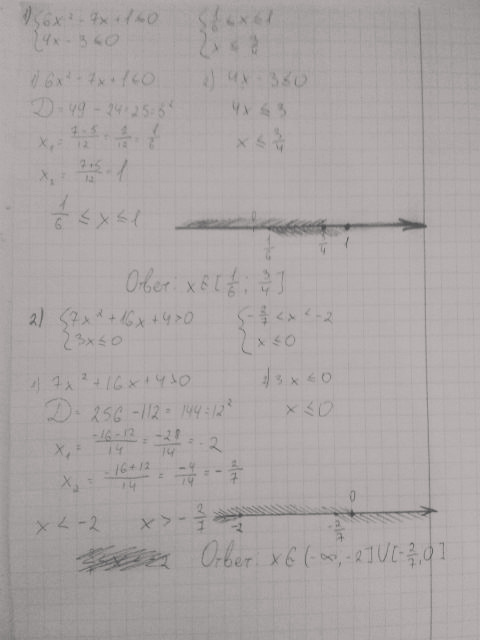 1) {6x² - 7x + 1 ≤ 0
{4x - 3 ≤ 0
{1/6 ≤ x ≤ 1
{x ≤ 3/4
1) 6x² - 7x + 1 ≤ 0
2) 4x - 3 ≤ 0
D = 49 - 24 = 25 = 5²
4x ≤ 3
x₁ = (7-5)/12 = 2/12 = 1/6
x ≤ 3/4
x₂ = (7+5)/12 = 1
1/6 ≤ x ≤ 1
0
1/6 3/4 1
Ответ: x ∈ [1/6; 3/4]
2) {7x² + 16x + 4 > 0
{3x ≤ 0
{-2/7 < x < -2
{x ≤ 0
1) 7x² + 16x + 4 > 0
2) 3x ≤ 0
D = 256 - 112 = 144 = 12²
x ≤ 0
x₁ = (-16-12)/14 = -28/14 = -2
x₂ = (-16+12)/14 = -4/14 = -2/7
x < -2 x > -2/7
-2 -2/7 0
Ответ: x ∈ (-∞, -2] ∪ [-2/7, 0]